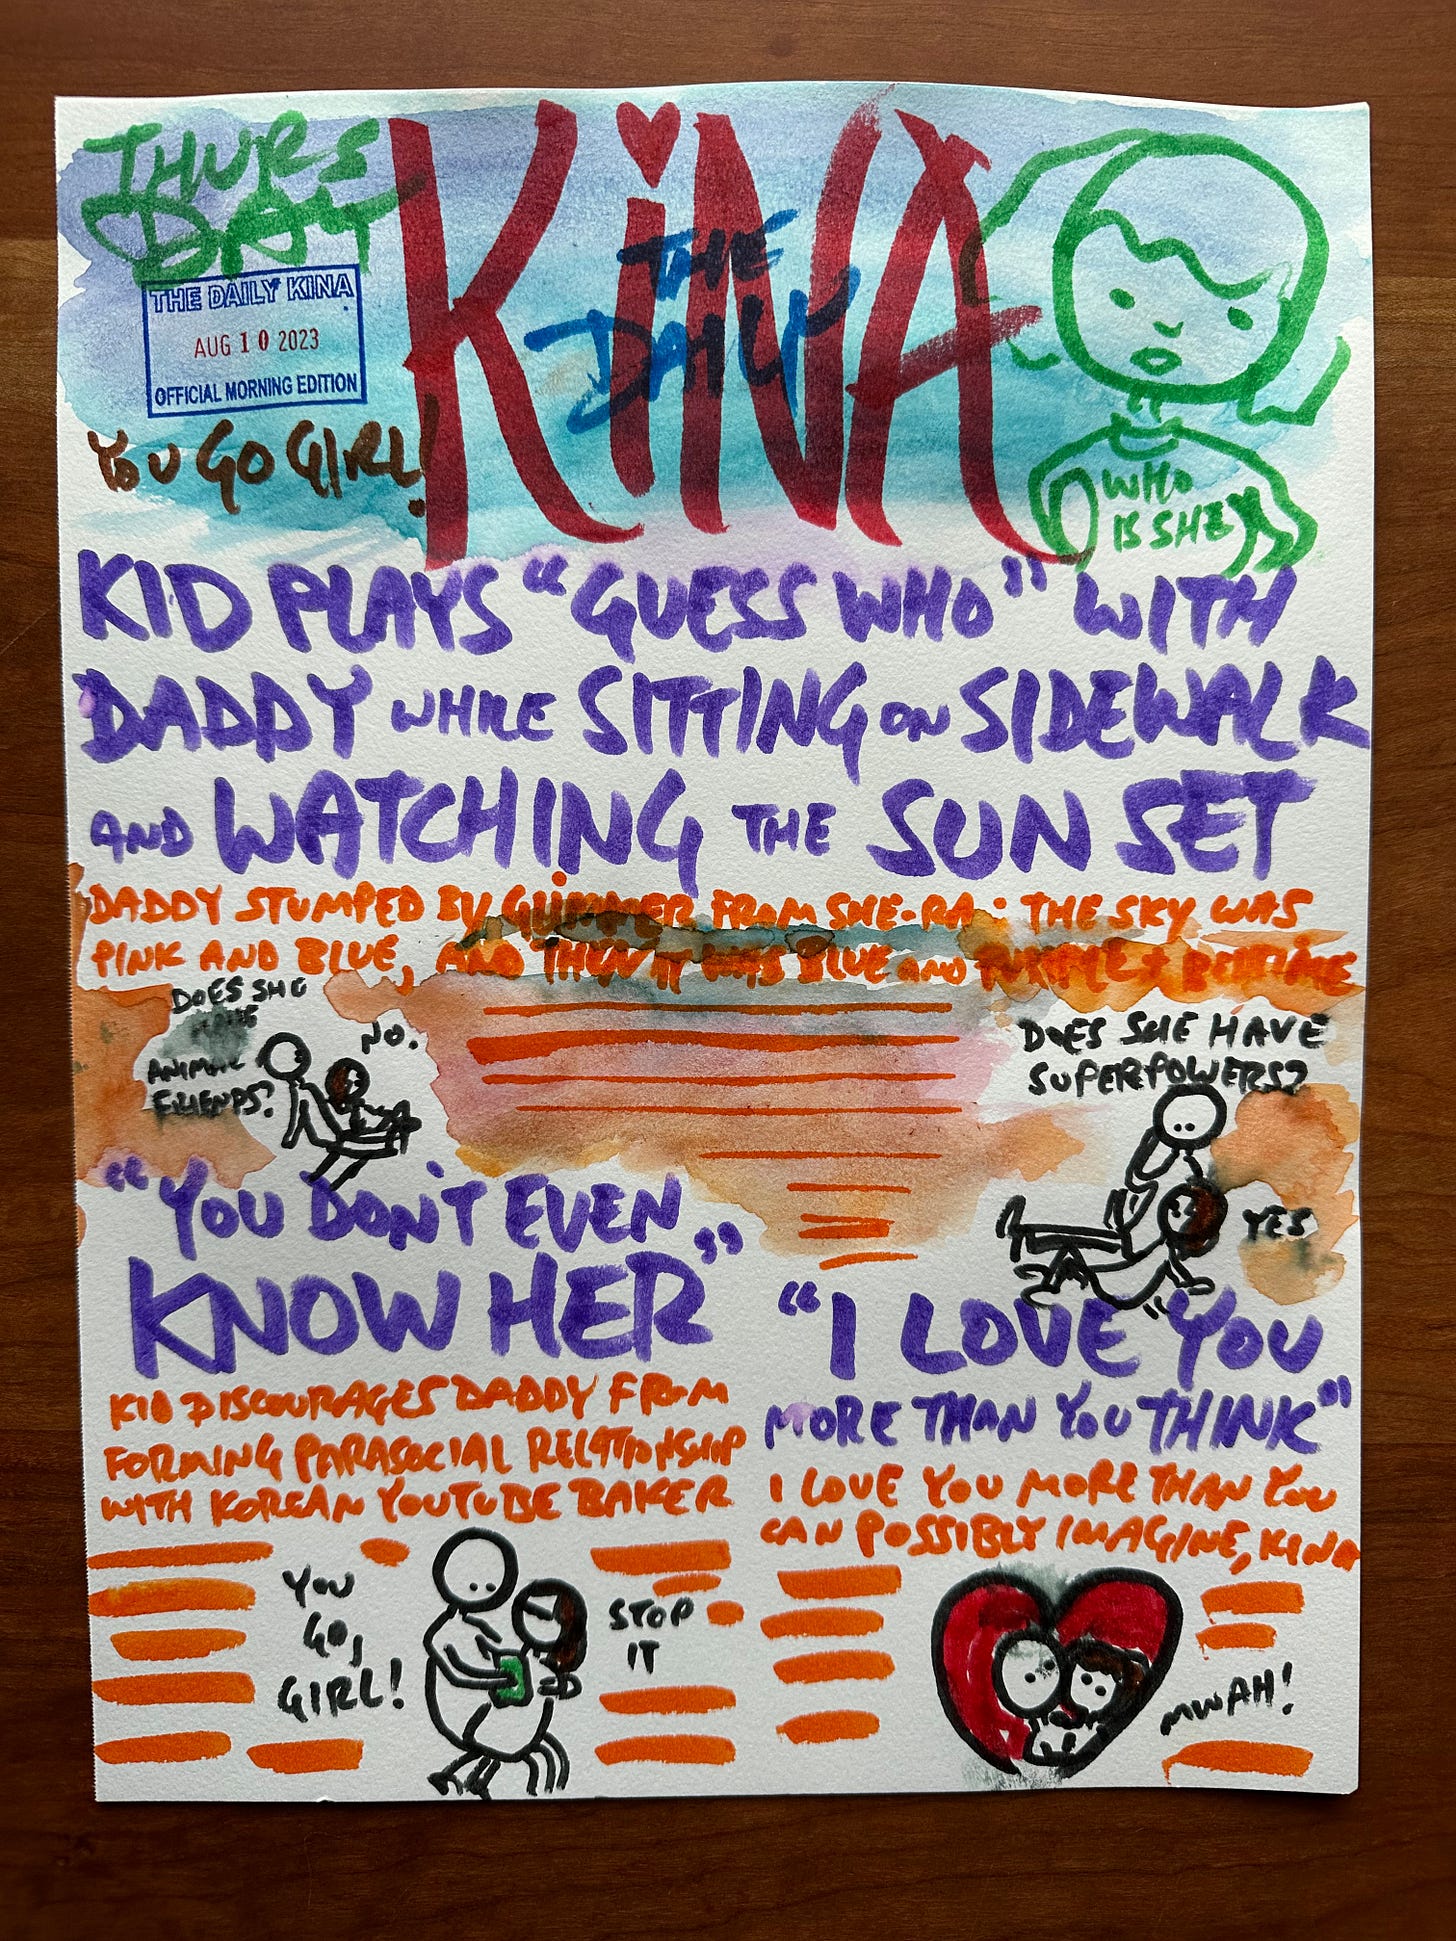 THURS
DAY
THE DAILY KINA
AUG 10 2023
OFFICIAL MORNING EDITION
YOU GO GIRL!
KiNA
THE
DAILY
WHO
IS SHE
KID PLAYS "GUESS WHO" WITH
DADDY WHILE SITTING ON SIDEWALK
AND WATCHING THE SUN SET
DADDY STUMPED BY GLIMMER FROM SHE-RA: THE SKY WAS
PINK AND BLUE, AND THEN IT WAS BLUE AND PURPLE + BEDTIME
DOES SHE
HAVE
ANIMAL
FRIENDS?
NO.
DOES SHE HAVE
SUPERPOWERS?
YES
"YOU DON'T EVEN
KNOW HER"
KID DISCOURAGES DADDY FROM
FORMING PARASOCIAL RELATIONSHIP
WITH KOREAN YOUTUBE BAKER
YOU
GO,
GIRL!
STOP
IT
"I LOVE YOU
MORE THAN YOU THINK"
I LOVE YOU MORE THAN YOU
CAN POSSIBLY IMAGINE, KINA
MWAH!